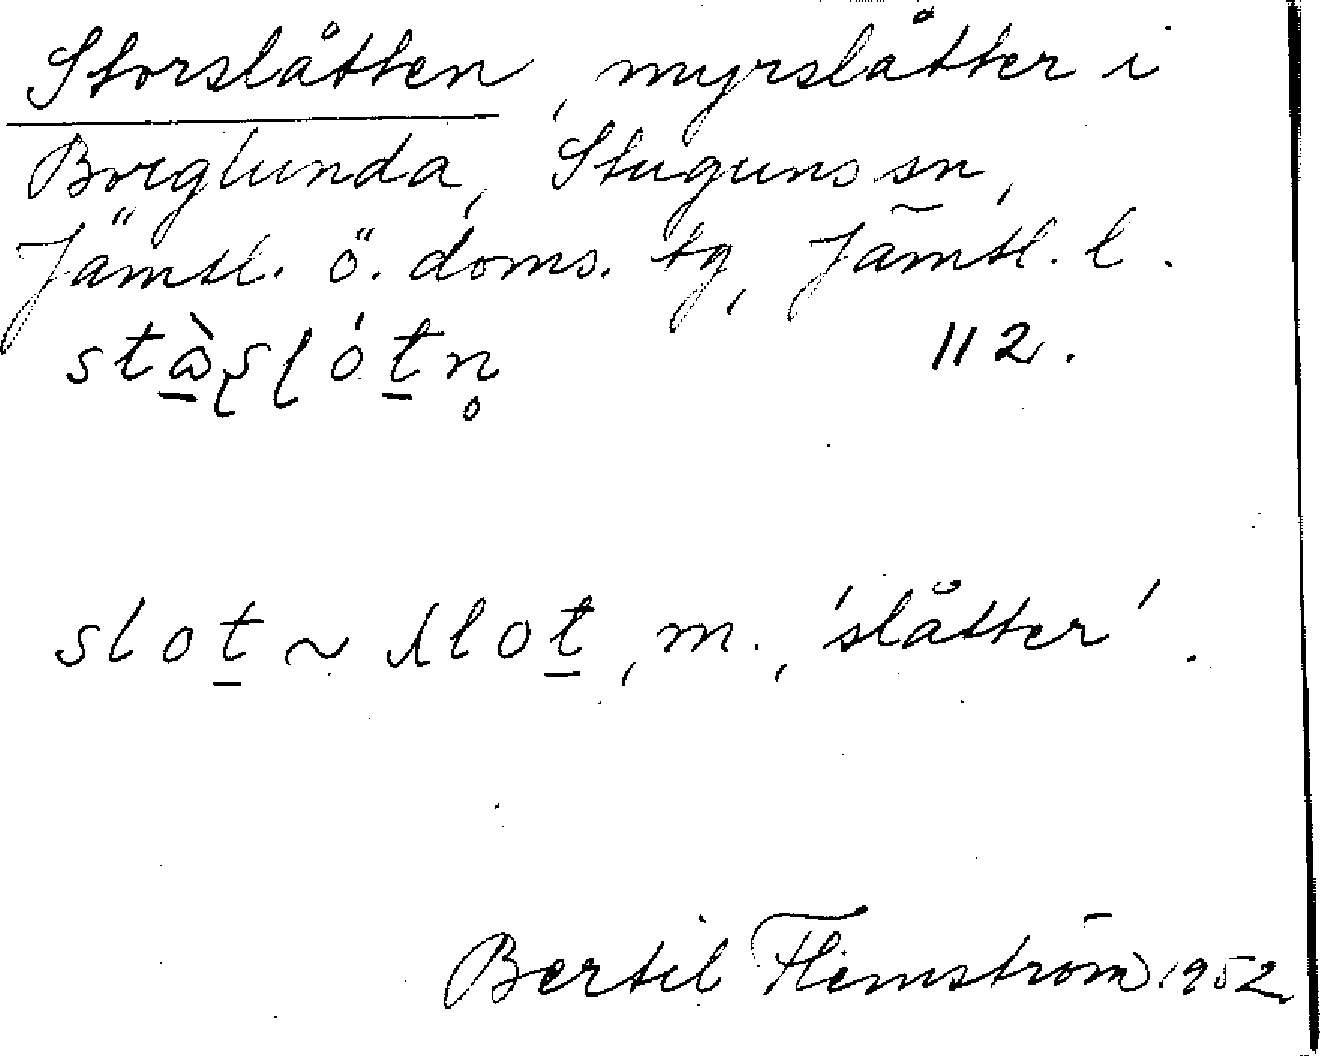 Storslåtten, myrslåtter i
Borglunda, Stuguns sn,
Jämtl. ö. doms. tg, Jämtl. l.
112.
slot̲ ~ slot̲, m., 'slåtter'.
Bertil Flemström 1952